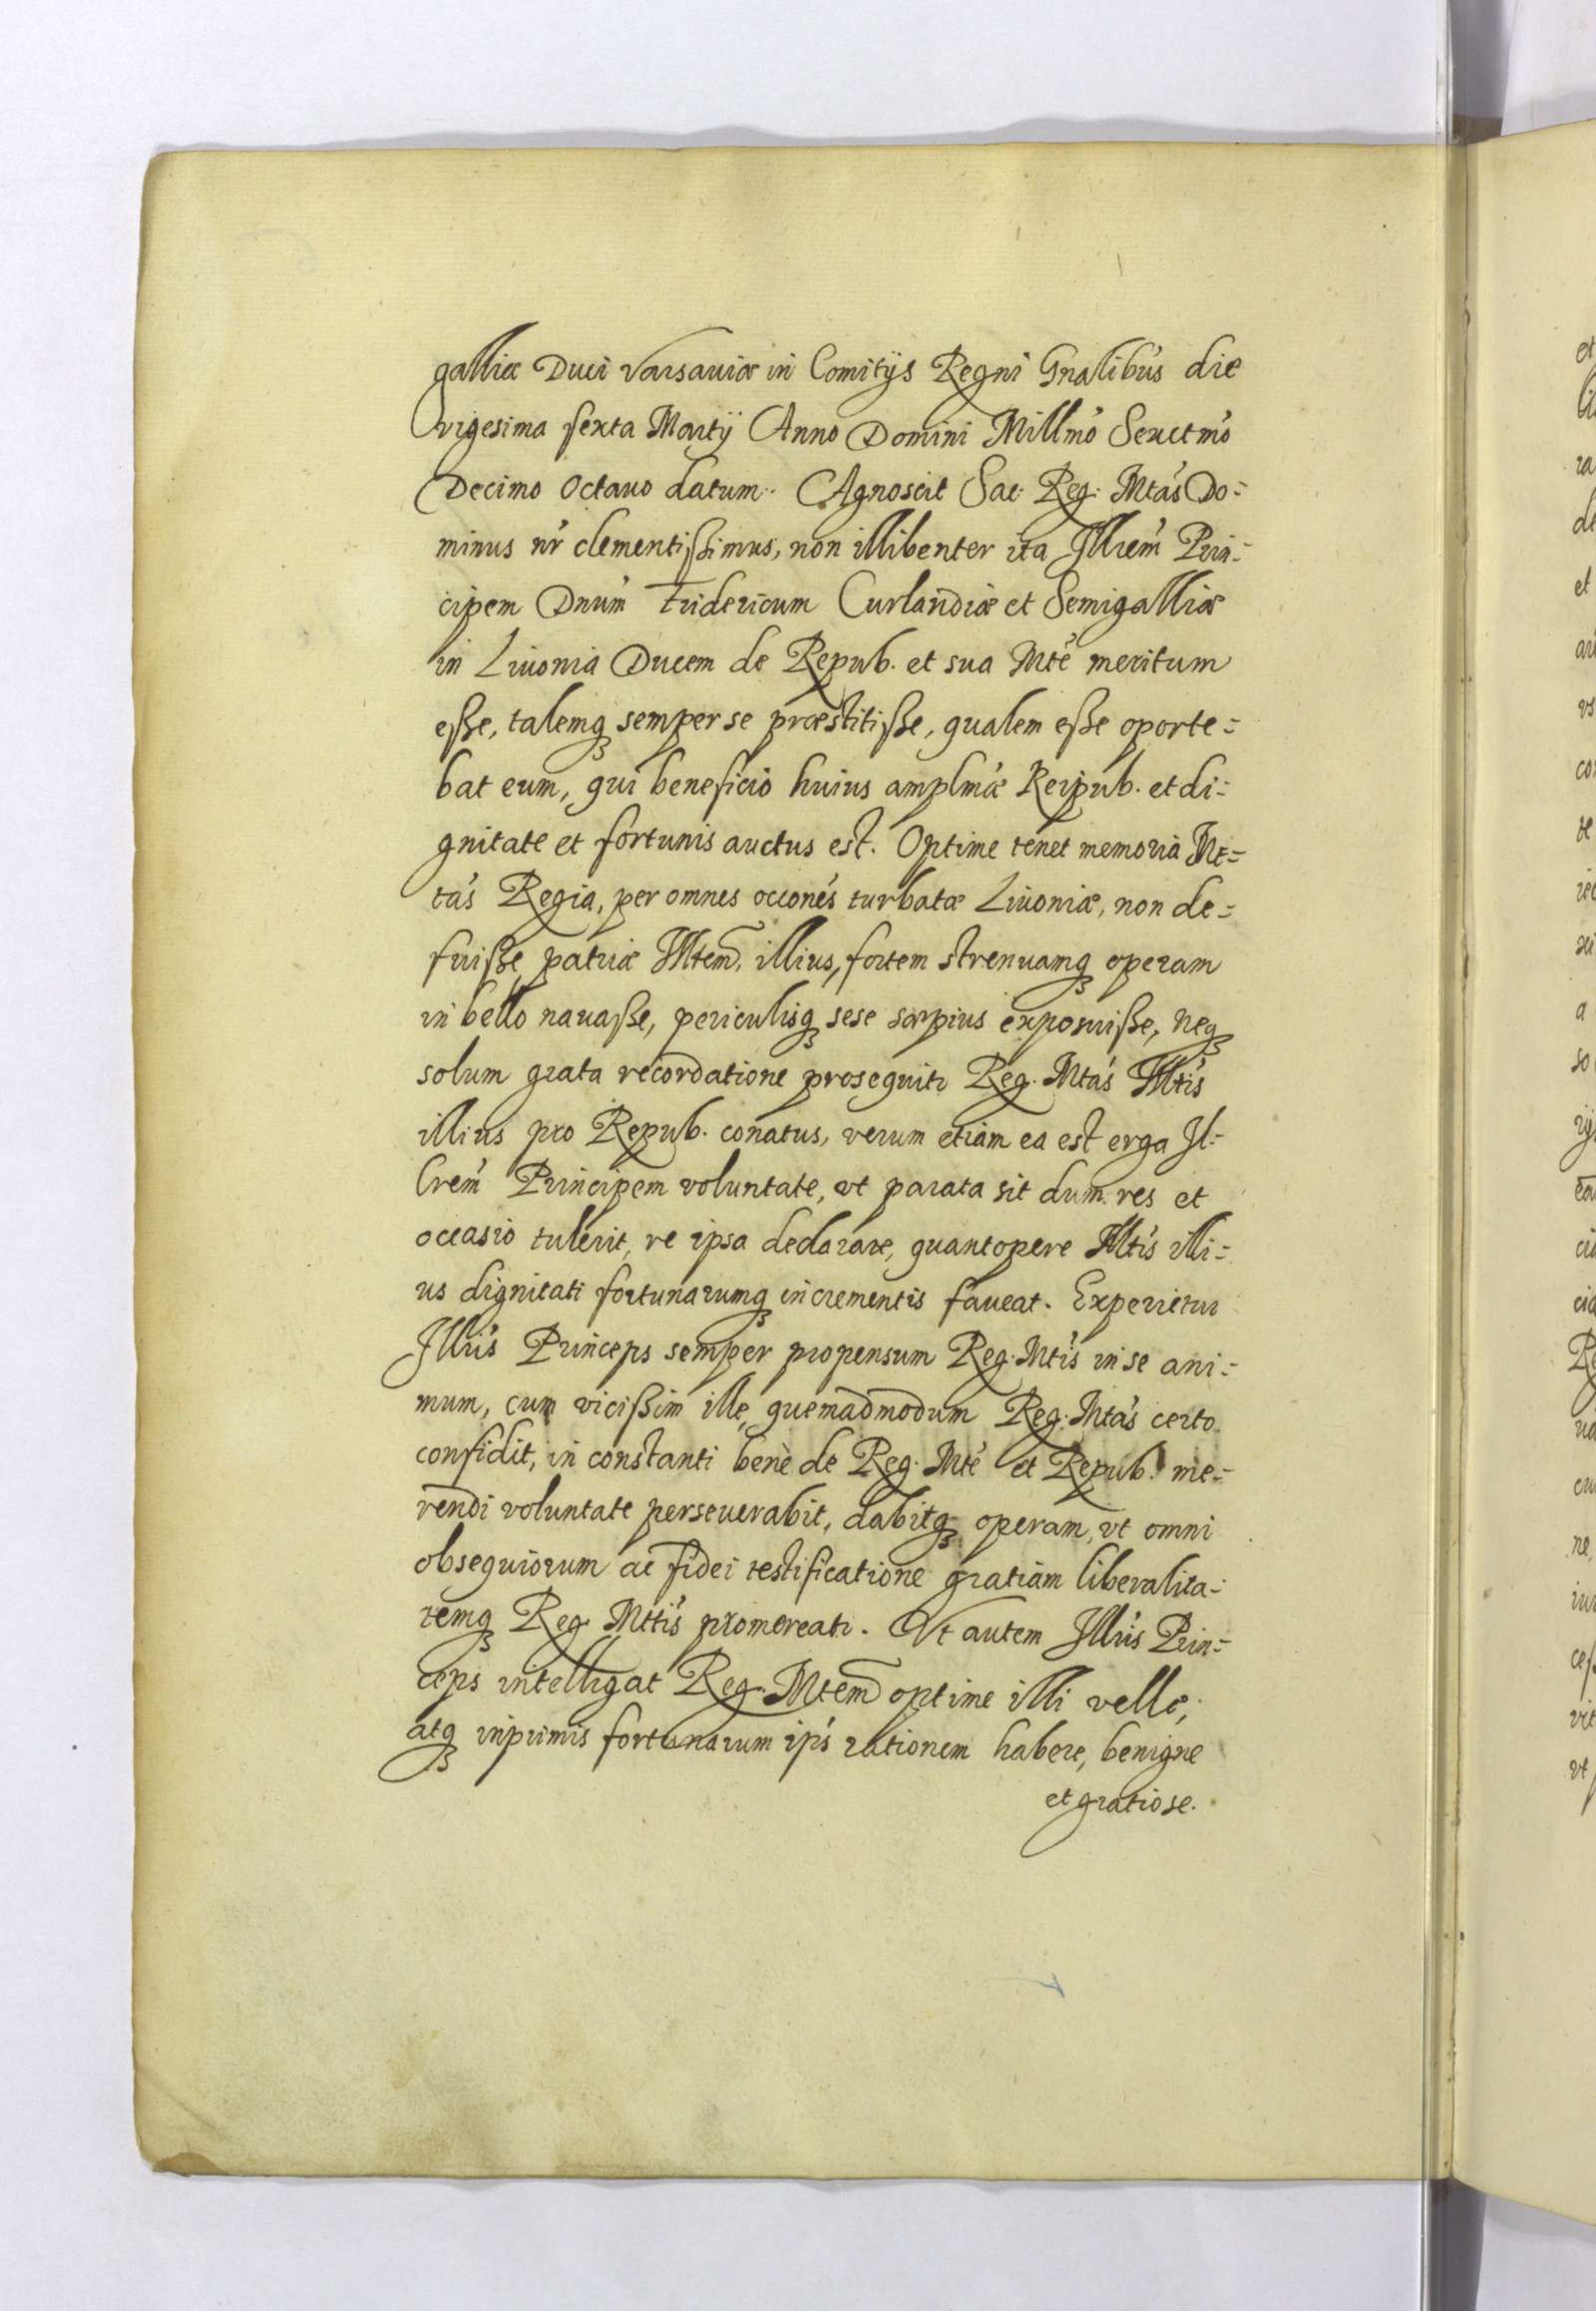 galliæ Duci Varsaviæ in Comitÿs Regni Gnalibus die
vigesima sexta Martÿ Anno Domini Millmo Sexctmo
Decimo Octavo datum. Agnoscit Sac: Reg: Mtas Do:
minus nr clementißimus, non illibenter ita Illrem Prin:
cipem Dnum Fridericum Curlandiæ et Semigalliæ
in Livonia Ducem de Repub. et sua Mte meritum
eße, talemq semper se præstitiße, qualem eße oporte:
bat eum, qui beneficio huius amplmæ Reipub. et di:
gnitate et fortunis auctus est. Optime tenet memoria Mt:
tas Regia, per omnes occones turbatæ Livoniæ, non de:
fuiße patriæ Illtem, illius, fortem strenuamq operam
in bello navaße, periculisq sese sæpius exposuiße, neq
solum grata recordatione prosequitr Reg. Mtas Illtis
illius pro Repub. conatus, verum etiam ea est erga Il:
lrem Principem voluntate, vt parata sit dum res et
occasio tulerit, re ipsa declarare, quantopere Illtis illi:
us dignitati fortunarumq incrementis faveat. Experietur
Illris Princeps semper propensum Reg. Mtis in se ani:
mum, cum vicißim ille, quemadmodum Reg: Mtas certo
confidit, in constanti benè de Reg. Mte et Repub. me:
rendi voluntate perseverabit, dabitq operam, vt omni
obsequiorum ac fidei testificatione gratiam liberalita:
temq Reg Mttis promereatr. Vt autem Illris Prin:
ceps intelligat Reg. Mtem optime illi velle,
atq inprimis fortunarum ips rationem habere, benigne
et gratiose.